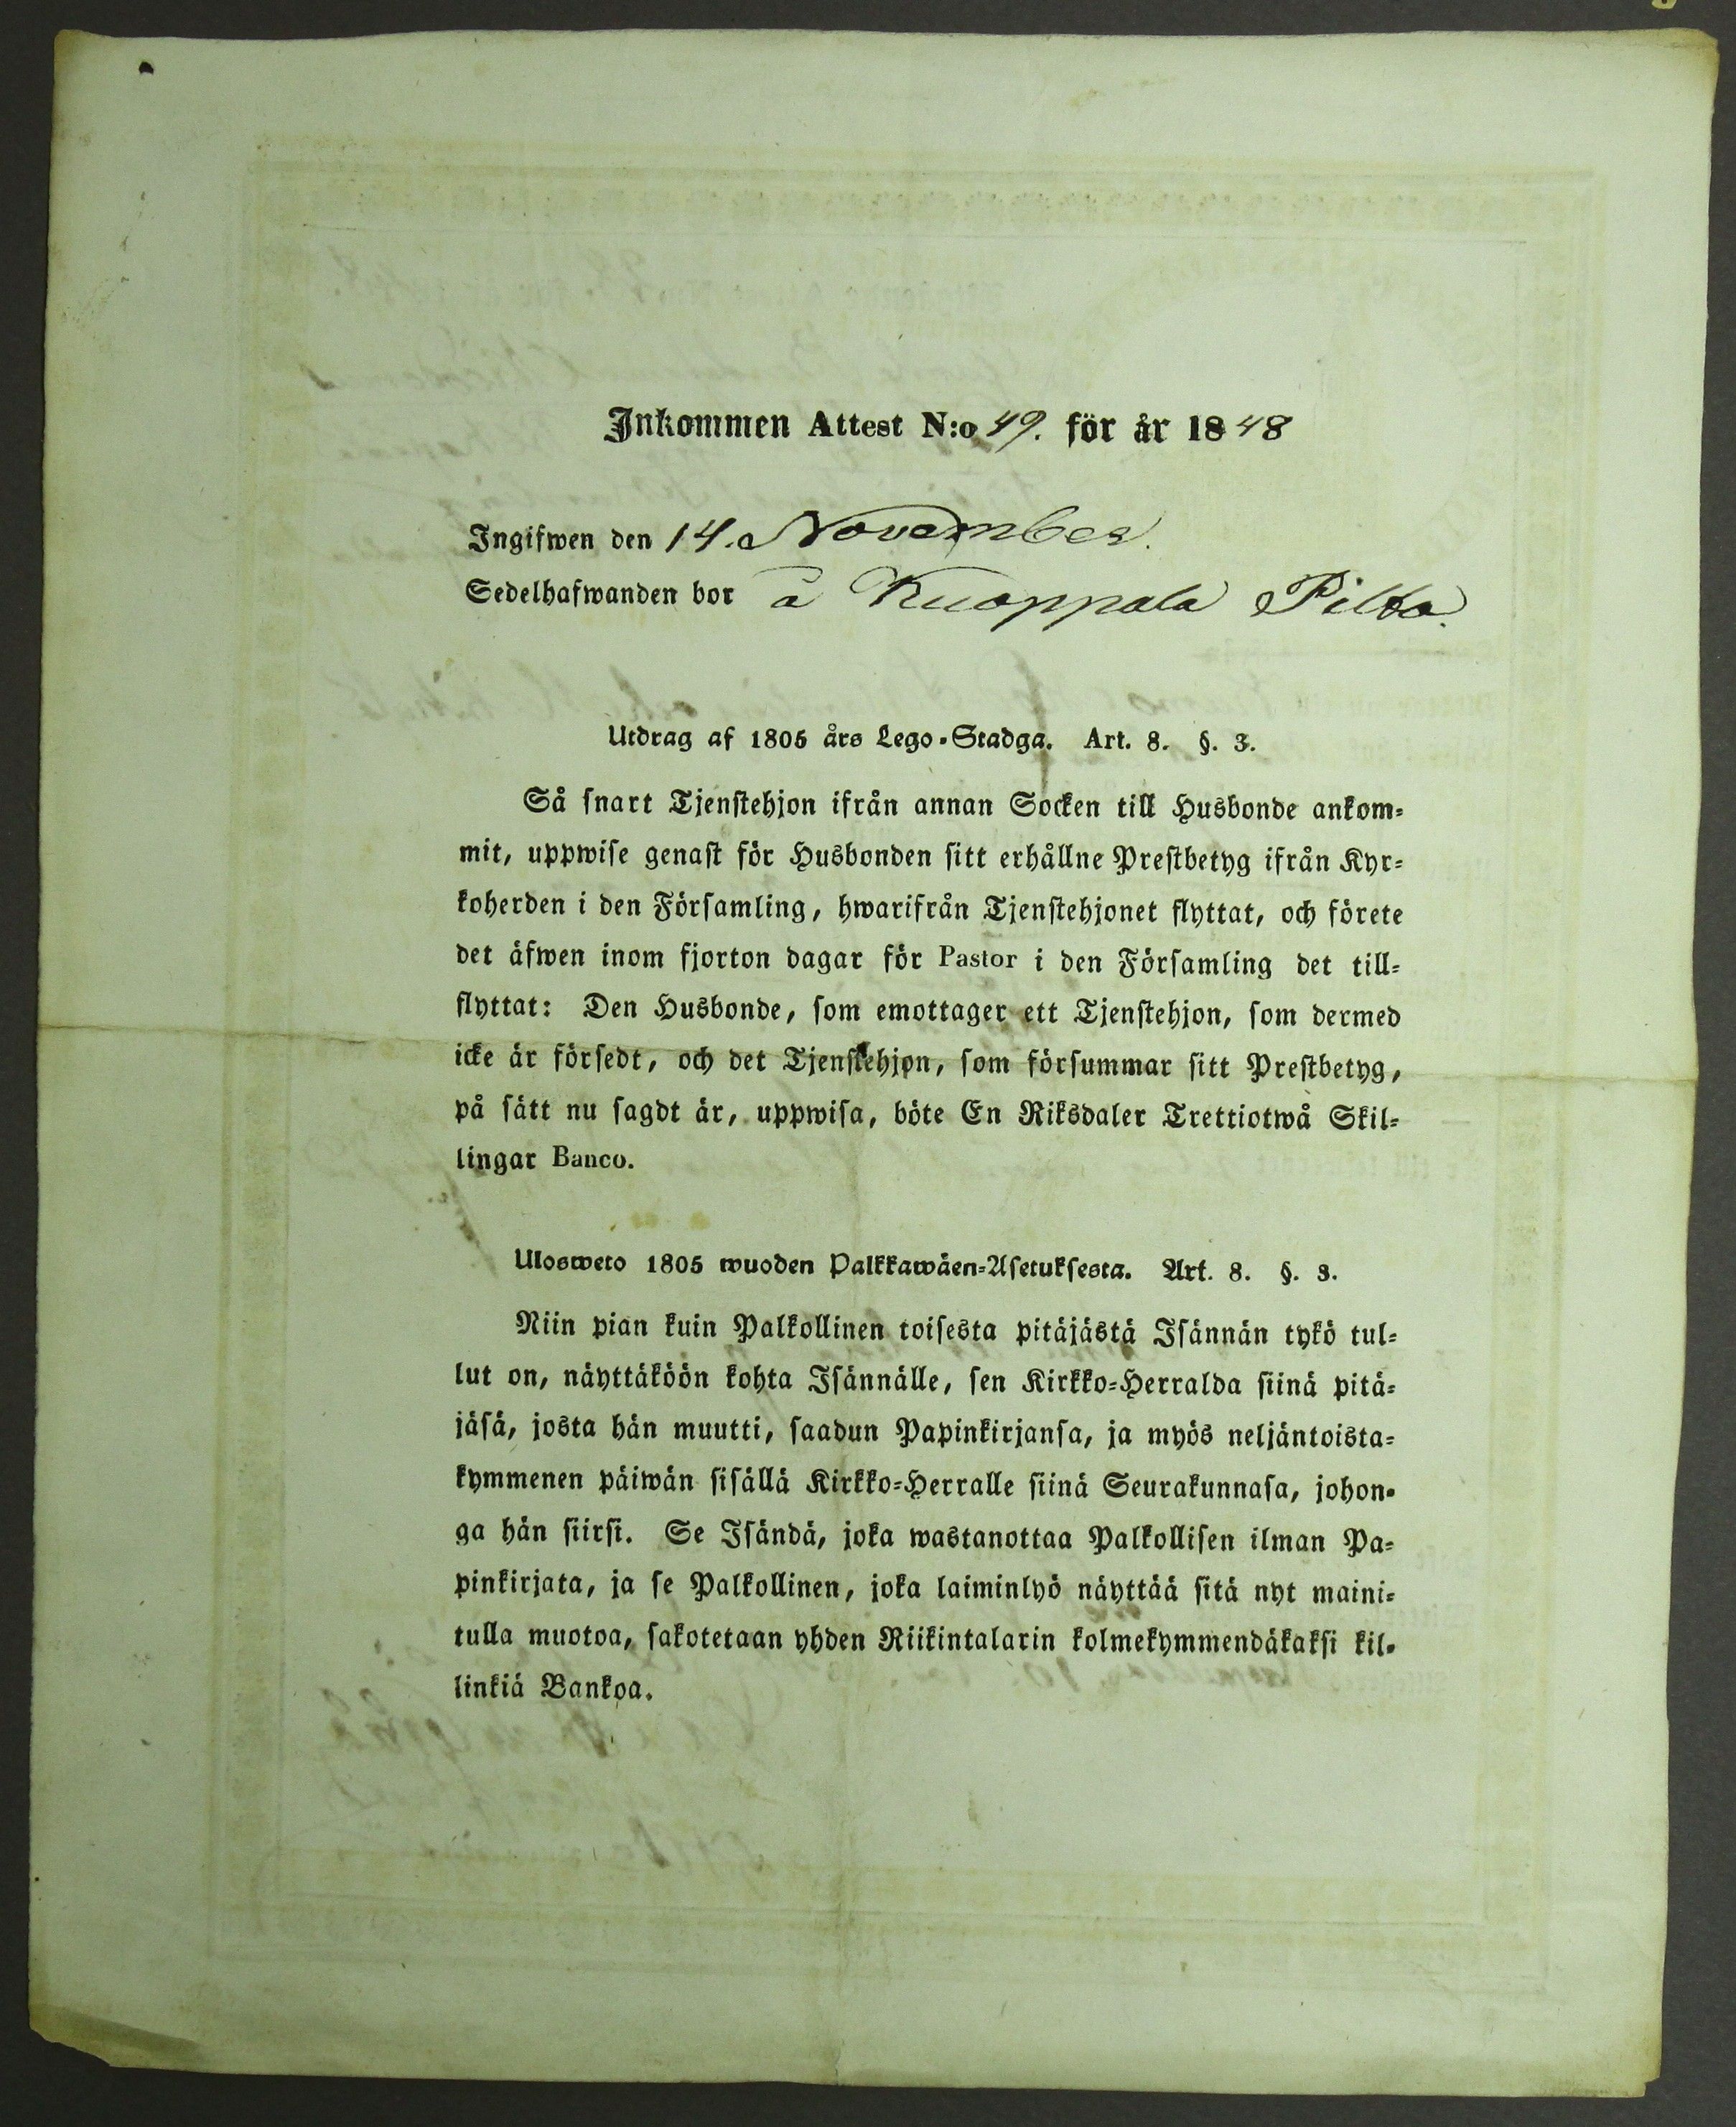 Inkommen Attest N:o 49. för år 1848
Ingifwen den 14. November.
Sedelhafwanden bor å Kuoppala Pilta.
Utdrag af 1805 års Lego-Stadga. Art. 8. §. 3.
Så snart Tjenstehjon ifrån annan Socken till Husbonde ankom-
mit, uppwise genast för Husbonden sitt erhållne Prestbetyg ifrån Kyr-
koherden i den Församling, hwarifrån Tjenstehjonet flyttat, och förete
det äfwen inom fjorton dagar för Pastor i den Församling det till-
flyttat: Den Husbonde, som emottager ett Tjenstehjon, som dermed
icke är försedt, och det Tjenstehjon, som försummar sitt Prestbetyg,
på sätt nu sagdt är, uppwisa, böte En Riksdaler Trettiotwå Skil-
lingar Banco.
Ulosweto 1805 wuoden Palkkawäen-Asetuksesta. Art. 8. §. 3.
Niin pian kuin Palkollinen toisesta pitäjästä Isännän tykö tul-
lut on, näyttäköön kohta Isännälle, sen Kirkko-Herralda siinä pitä-
jäsä, josta hän muutti, saadun Papinkirjansa, ja myös neljäntoista-
kymmenen päiwän sisällä Kirkko-Herralle siinä Seurakunnasa, johon-
ga hän siirsi. Se Isändä, joka wastanottaa Palkollisen ilman Pa-
pinkirjata, ja se Palkollinen, joka laiminlyö näyttää sitä nyt maini-
tulla muotoa, sakotetaan yhden Riikintalarin kolmekymmendäkaksi kil-
linkiä Bankoa.